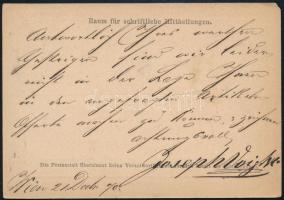 Raum für schriftliche Mittheilungen.
Antwortlich Ihres werthen
Gestrigen sind wir leider
nicht in der Lage Ihnen
in den Artikeln
Offerte machen zu können, zeichnen
achtungsvoll
Die Postanstalt übernimmt keine
Joseph Voigt
Wien 21 Dec